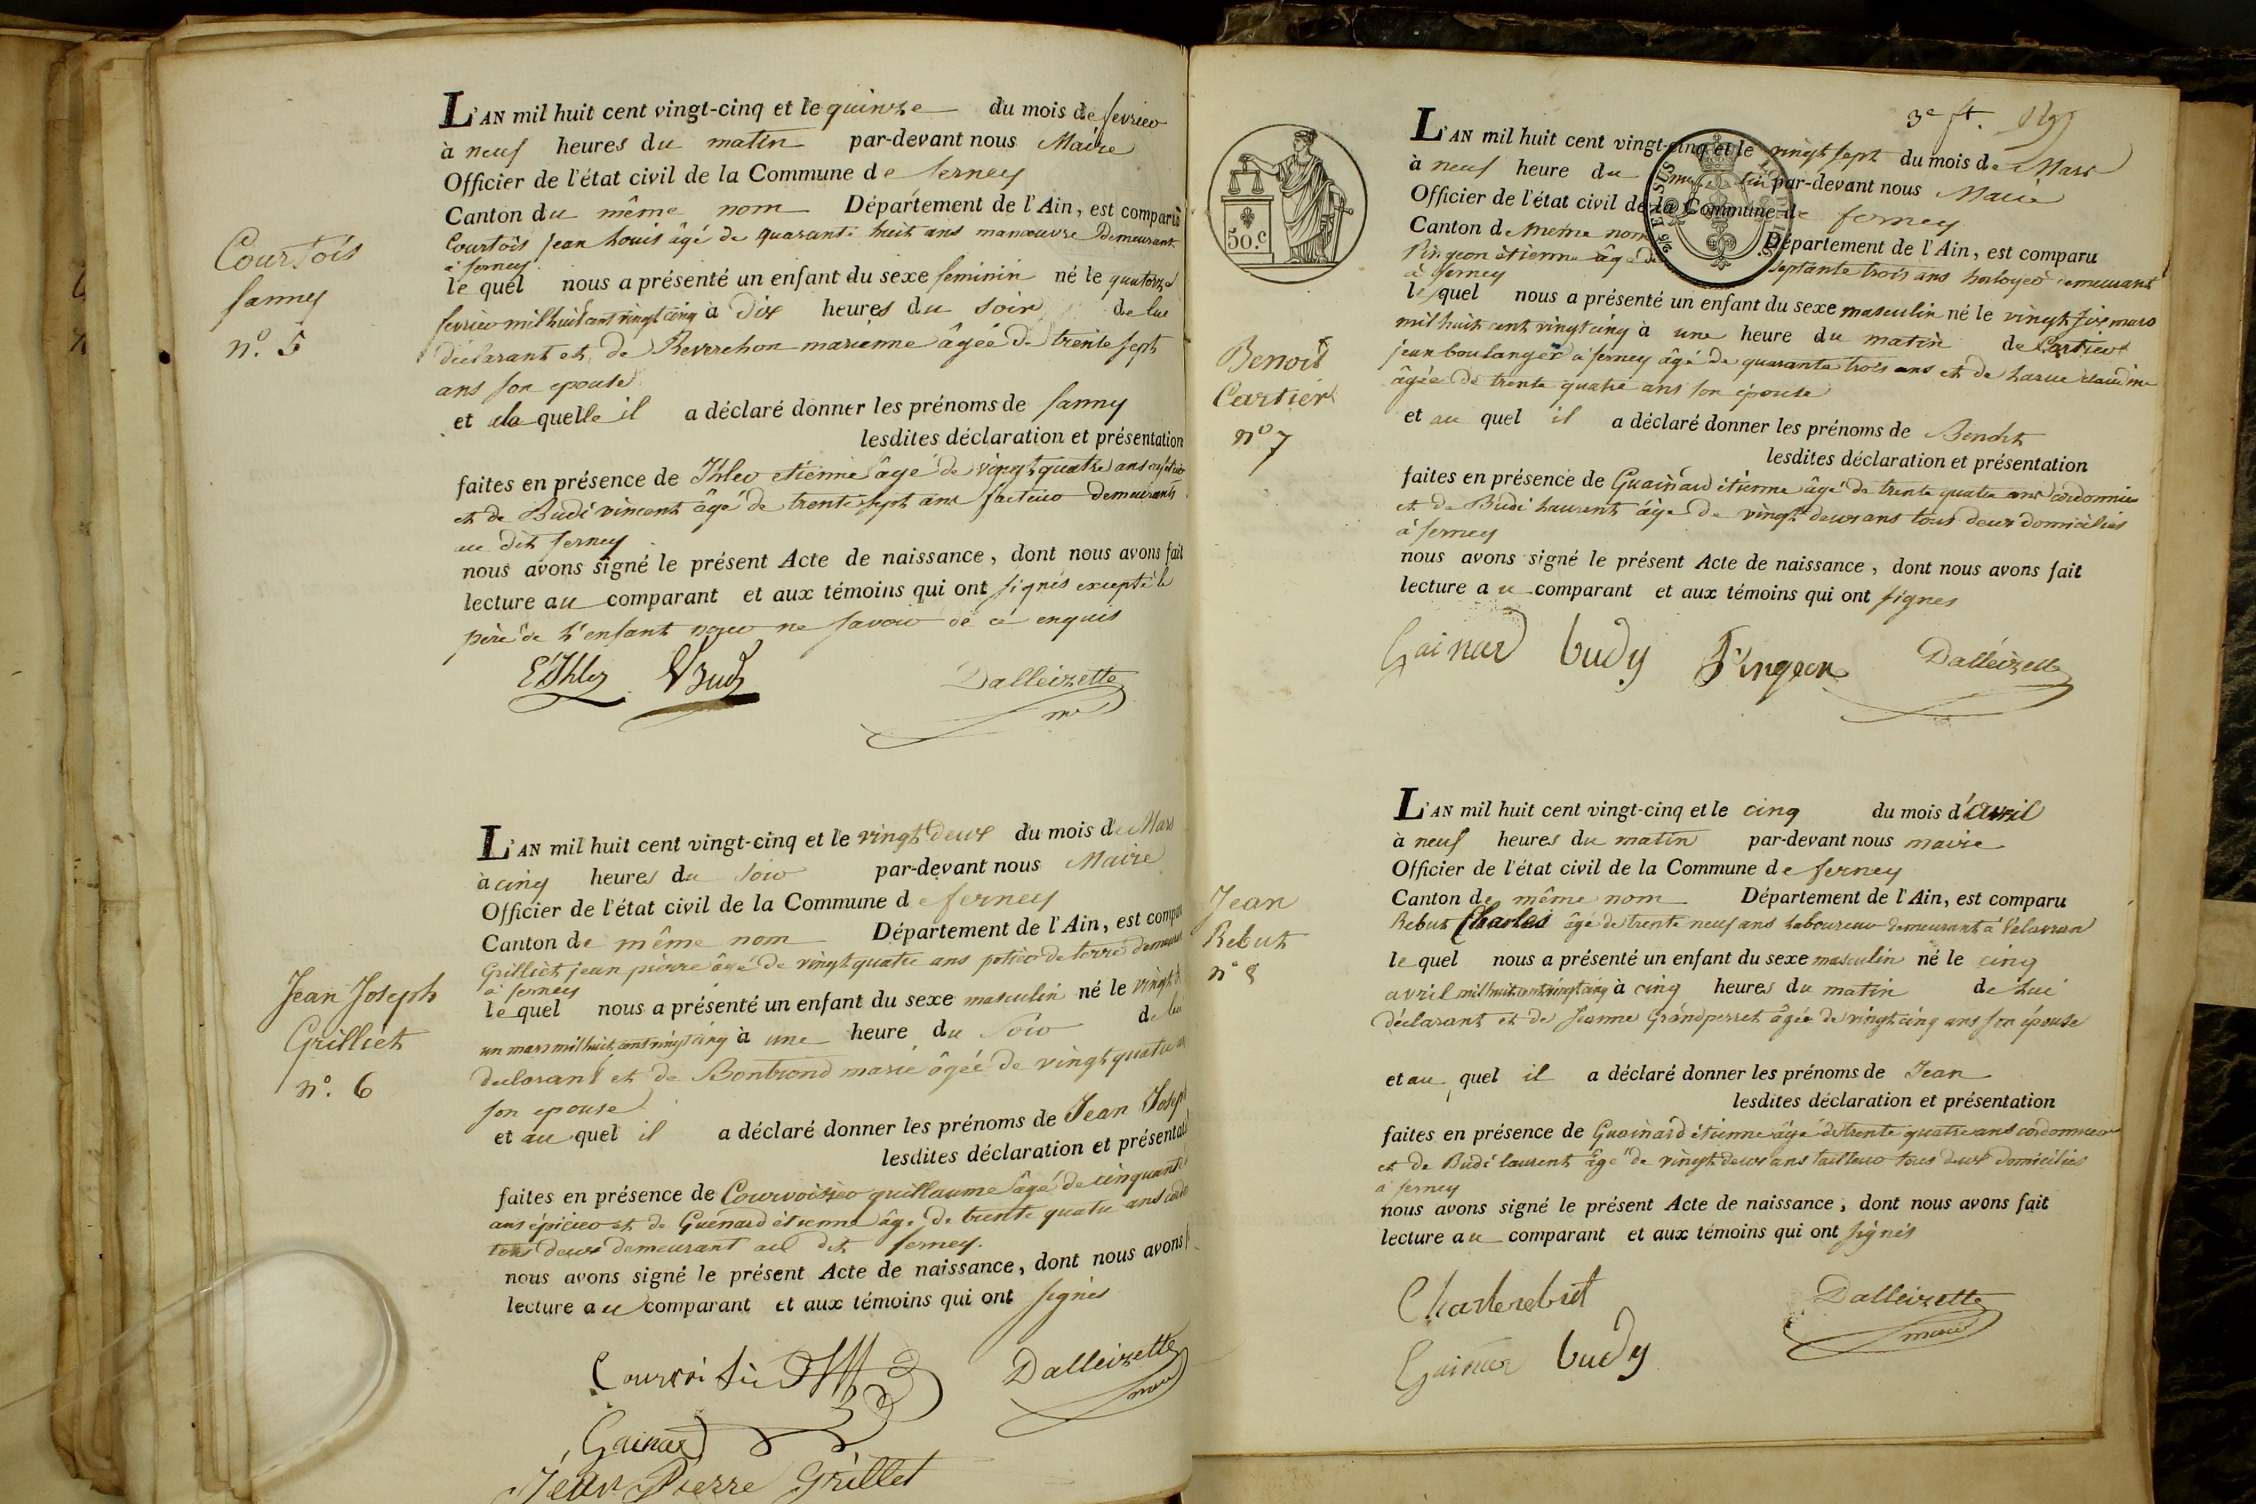 L'AN mil huit cent vingt-cinq et le quinze du mois de fevrier
à neuf heures du matin par-devant nous Maire
Officier de l'état civil de la Commune de ferney
Canton du même nom Département de l'Ain, est comparu
Courtois jean louis âgé de quarante huit ans manœuvre demeurant
à ferney
le quel nous a présenté un enfant du sexe feminin né le quatorze
fevrier mil huit cent vingt cinq à dix heures du soir de lui
déclarant et de Reverchon marienne âgée de trente sept
ans son epouse
et a la quelle il a déclaré donner les prénoms de fanny
lesdites déclaration et présentation
faites en présence de Ihler etienne âgé de vingt quatre ans
et de Budé vincent âgé de trente sept ans facteur demeurants
au dit ferney
nous avons signé le présent Acte de naissance, dont nous avons fait
lecture au comparant et aux témoins qui ont signés excepté le
père de l'enfant pour ne savoir de ce enquis
Courtois
fanny
n°. 5
E Ihler VBudé Dalleizette
L'AN mil huit cent vingt-cinq et le vingt deux du mois de Mars
à cinq heures du soir par-devant nous Maire
Officier de l'état civil de la Commune de ferney
Canton de même nom Département de l'Ain, est compar
Grilliet jean pierre âgé de vingt quatre ans potier de terre demeurant
à ferney
le quel nous a présenté un enfant du sexe masculin né le vingt
un mars mil huit cent vingt cinq à une heure du soir de lui
declarant et de Bontrond marie âgée de vingt quatre
son epouse
et au quel il a déclaré donner les prénoms de Jean Joseph
lesdites déclaration et présentat
faites en présence de Courvoisier guillaume âgé de cinquante
ans épicier et de Guénard étienne âgé de trente quatre ans
tous deux demeurant au dit ferney.
nous avons signé le présent Acte de naissance, dont nous avons f
lecture au comparant et aux témoins qui ont signés
Jean Joseph
Grilliet
n°. 6
Dalleizette
maire
Gainard
Jean Pierre Grillet
3e ft.
50.c
L'AN mil huit cent vingt-cinq et le vingt sept du mois de Mars
à neuf heure du par-devant nous Maire
Officier de l'état civil de la Commune de ferney
Canton de meme nom Département de l'Ain, est comparu
Pingeon étienne âgé de septante trois ans horloger demeurant
à ferney
le quel nous a présenté un enfant du sexe masculin né le vingt six mars
mil huit cent vingt cinq à une heure du matin de Cartier
jean boulanger à ferney âgé de quarante trois ans et de harue claudine
âgée de trente quatre ans son épouse
et au quel il a déclaré donner les prénoms de Benoit
lesdites déclaration et présentation
faites en présence de Guainard étienne âgé de trente quatre ans cordonnier
et de Budé laurent âgé de vingt deux ans tous deux domiciliés
à ferney
nous avons signé le présent Acte de naissance, dont nous avons fait
lecture au comparant et aux témoins qui ont signes
Benoit
Cartier
n° 7
Gainard budy Pingeon Dalleizette
L'AN mil huit cent vingt-cinq et le cinq du mois d'avril
à neuf heures du matin par-devant nous maire
Officier de l'état civil de la Commune de ferney
Canton de même nom Département de l'Ain, est comparu
Rebut Charles âgé de trente neuf ans laboureur demeurant à
le quel nous a présenté un enfant du sexe masculin né le cinq
avril mil huit cent vingt cinq à cinq heures du matin de lui
déclarant et de Jeanne Grandperret âgée de vingt cinq ans son épouse
et au quel il a déclaré donner les prénoms de Jean
lesdites déclaration et présentation
faites en présence de Guainard étienne âgé de trente quatre ans cordonnier
et de Budé laurent âgé de vingt deux ans tailleur tous deux domiciliés
à ferney
nous avons signé le présent Acte de naissance, dont nous avons fait
lecture au comparant et aux témoins qui ont signés
Jean
Rebut
n° 8
Dalleizette
maire
Gainar budy